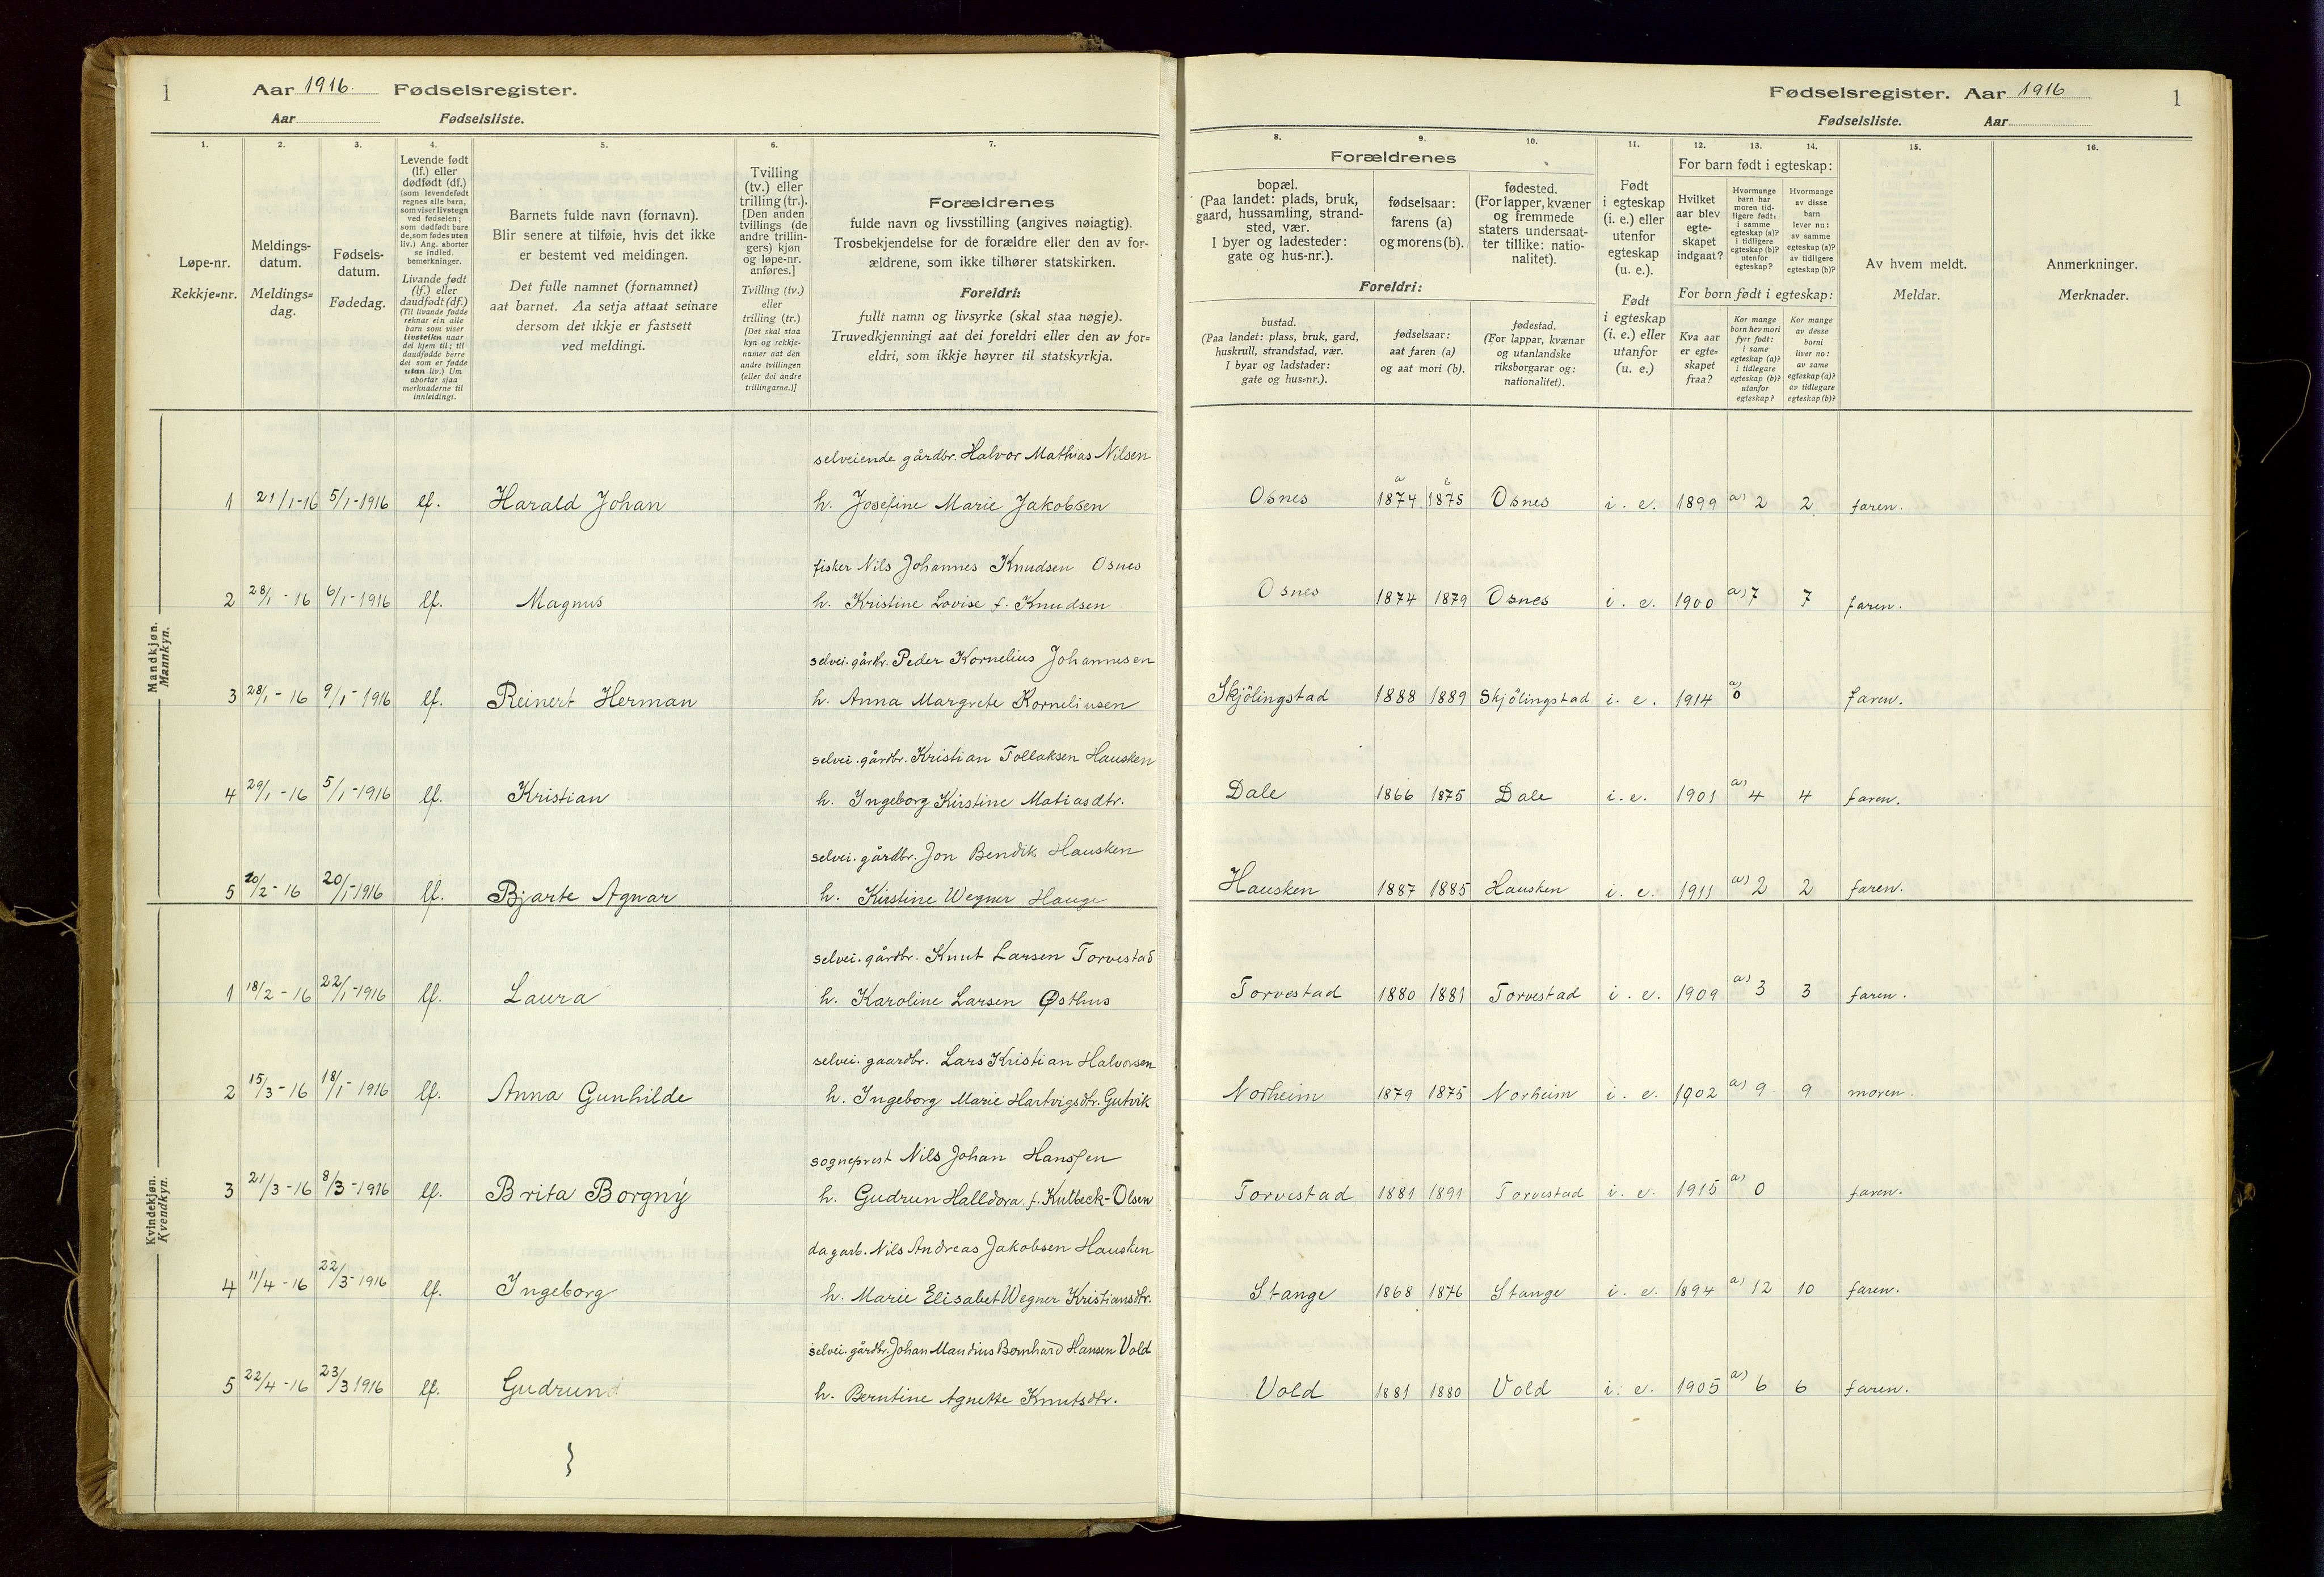 1
Aar 1916. Fødselsregister.
Aar Fødselsliste.
1.
2.
3.
4.
5.
6.
7.
Løpe-nr.
Rekkje=nr.
Meldings-
datum.
Meldings=
dag.
Fødsels-
datum.
Fødedag.
Levende født
(lf.) eller
dødfødt (df.)
(som levendefødt
regnes alle barn,
som viser livstegn
ved fødselen;
som dødfødt bare
de, som fødes uten
liv.) Ang. aborter
se indled.
bemerkninger.
Livande født
(lf.) eller
daudfødt (df.)
(Til livande fødde
reknar ein alle
barn som viser
livsteikn naar
dei kjem til; til
daudfødde berre
dei som er fødde
utan liv.) Um
abortar sjaa
merknaderne til
innleidingi.
Barnets fulde navn (fornavn).
Blir senere at tilføie, hvis det ikke
er bestemt ved meldingen.
Det fulle namnet (fornamnet)
aat barnet. Aa setja attaat seinare
dersom det ikkje er fastsett
ved meldingi.
Tvilling
(tv.) eller
trilling (tr.).
[Den anden
tvillings (de
andre trillin-
gers) kjøn
og løpe-nr.
anføres.]
Tvilling (tv.)
eller
trilling (tr.)
[Det skal staa
kyn og rekkje-
numer aat den
andre tvillingen
(eller dei andre
trillingarne.)]
Forældrenes
fulde navn og livsstilling (angives nøiagtig).
Trosbekjendelse for de forældre eller den av for-
ældrene, som ikke tilhører statskirken.
Foreldri:
fullt namn og livsyrke (skal staa nøgje).
Truvedkjenningi aat dei foreldri eller den av for=
eldri, som ikkje høyrer til statskyrkja.
Mandkjøn.
Mannkyn.
selveiende gårdbr. Halvor Mathias Nilsen
1 21/1-16 5/1-1916 lf. Harald Johan h. Josefine Marie Jakobsen
fisker Nils Johannes Knudsen Osnes
2 28/1-16 6/1-1916 lf. Magnus h. Kristine Lovise f. Knudsen
selvei. gårdbr. Peder Kornelius Johannesen
3 28/1-16 9/1-1916 lf. Reinert Herman h. Anna Margrete Korneliusen
selvei. gårdbr. Kristian Tollaksen Hausken
4 29/1-16 5/1-1916 lf. Kristian h. Ingeborg Kirstine Matiasdtr.
selvei. gårdbr. Jon Bendik Hausken
5 20/2-16 20/1-1916 lf. Bjarte Agnar h. Kirstine Wegner Hauge
Kvindekjøn.
Kvendkyn.
selvei. gårdbr. Knut Larsen Torvestad
1 18/2-16 22/1-1916 lf. Laura h. Karoline Larsen Østhus
selvei. gaardbr. Lars Kristian Halvorsen
2 15/3-16 18/1-1916 lf. Anna Gunhilde h. Ingeborg Marie Hartvigsdtr. Gutvik
sogneprest Nils Johan Hansen
3 21/3-16 8/3-1916 lf. Brita Borgny h. Gudrun Halldora f. Kulbeck-Olsen
dagarb. Nils Andreas Jakobsen Hausken
4 11/4-16 22/3-1916 lf. Ingeborg h. Marie Elisabet Wegner Kristiansdtr.
selvei. gårdbr. Johan Mandius Bernhard Hansen Vold
5 22/4-16 23/3 1916 lf. Gudrun h. Berntine Agnette Knutsdtr.
Fødselsregister. Aar 1916
1
Fødselsliste. Aar
8.
9.
10.
11.
12.
13.
14.
15.
16.
Forældrenes
bopæl.
(Paa landet: plads, bruk,
gaard, hussamling, strand-
sted, vær.
I byer og ladesteder:
gate og hus-nr.).
fødselsaar:
farens (a)
og morens (b).
fødested.
(For lapper, kvæner
og fremmede
staters undersaat-
ter tillike: natio-
nalitet).
Foreldri:
bustad.
(Paa landet: plass, bruk, gard,
huskrull, strandstad, vær.
I byar og ladstader:
gate og hus=nr.).
fødselsaar:
aat faren (a)
og aat mori (b).
fødestad.
(For lappar, kvænar
og utanlandske
riksborgarar og:
nationalitet).
Født
i egteskap
(i. e.) eller
utenfor
egteskap
(u. e.).
Født
i egteskap
(i. e.) eller
utanfor
(u. e.)
For barn født i egteskap:
Hvilket
aar blev
egte-
skapet
indgaat?
Hvormange
barn har
moren tid-
ligere født:
i samme
egteskap (a)?
i tidligere
egteskap (b)?
utenfor
egteskap?
Hvormange
av disse
barn
lever nu:
av samme
egteskap (a)?
av tidligere
egteskap (b)?
For born født i egteskap:
Kva aar
er egte=
skapet
fraa?
Kor mange
born hev mori
fyrr født:
i same
egteskap (a)?
i tidlegare
egteskap (b)?
utanfor
egteskap?
Kor mange
av desse
borni
liver no:
av same
egteskap (a)?
av tidlegare
egteskap (b)?
Av hvem meldt.
Meldar.
Anmerkninger.
Merknader.
a b
Osnes 1874 1875 Osnes i. e. 1899 a) 2 2 faren.
Osnes 1874 1879 Osnes i. e. 1900 a) 7 7 faren.
Skjölingstad 1888 1889 Skjölingstad i. e. 1914 a) 0 faren.
Dale 1866 1875 Dale i. e. 1901 a) 4 4 faren.
Hausken 1887 1885 Hausken i. e. 1911 a) 2 2 faren.
Torvestad 1880 1881 Torvestad i. e. 1909 a) 3 3 faren.
Norheim 1879 1875 Norheim i. e. 1902 a) 9 9 moren.
Torvestad 1881 1891 Torvestad i. e. 1915 a) 0 faren.
Stange 1868 1876 Stange i. e. 1894 a) 12 10 faren.
Vold 1881 1880 Vold i. e. 1905 a) 6 6 faren.